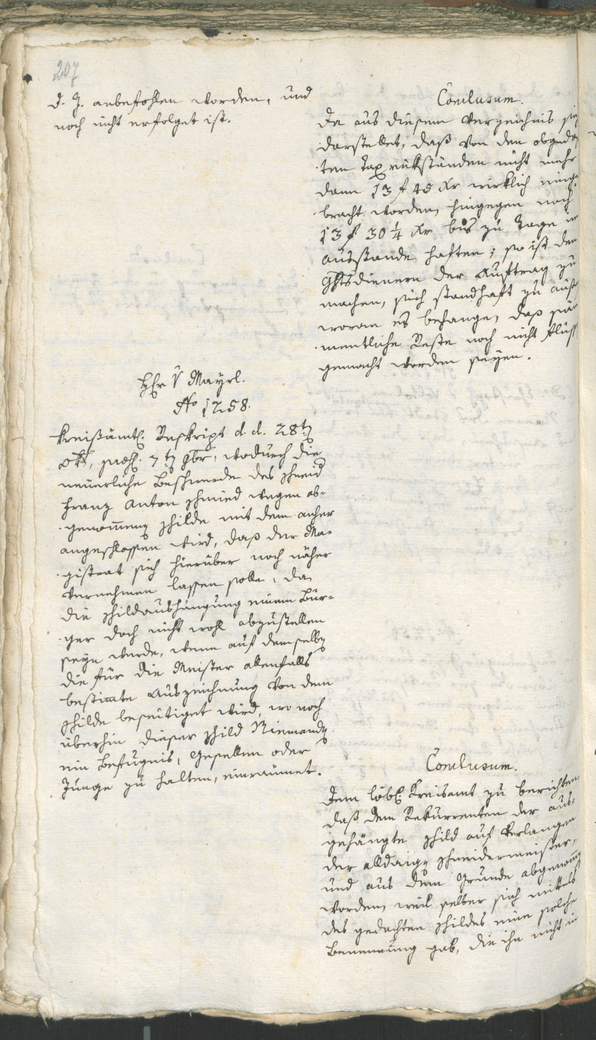 207
d. J. anbefohlen worden, und
noch nicht erfolget ist.
Conclusum.
Da aus diesem Verzeichnis
darstellet, daß von den
ten Taxrükständen nicht mehr
dann 13 f 45 Xr wirklich
bracht worden, hingegen noch
13 f 30 1/4 Xr bis zu Tage
ausstände haften; so ist den
Gftsdienern der Auftrag zu
machen, sich standhaft zu
woran es behange, daß
mentliche Reste noch nicht flüss
gemacht worden seyen.
Hr v Mayrl.
No 1258.
Kreißämtl. Reskript d. d. 28t
8br, wodurch die
neuerliche Beschwerde des Schneid
Franz Anton Schmied wegen ab-
genommeng Schilde mit dem anher
angeschlossen wird, daß der Ma-
gistrat sich hierüber noch näher
vernehmen lassen solle, da
die Schildaushängung einem Bür-
ger doch nicht wohl abzustellen
seyn würde, wenn auf demselbn
die für die Meister allenfalls
bestimte Auszeichnung von dem
Schilde beseitiget wird, wo noch
überhin dieser Schild Niemandn
ein Befugnis, Gesellen oder
Junge zu halten, einräumet.
Conclusum.
Dem löbl Kreisamt zu berichten
daß dem Rekurrenten der aus-
gehängte Schild auf Verlangen
der alldaign Schneidermeister,
und aus dem Grunde abgenom
worden, weil selber sich mittels
des gedachten Schildes eine solche
Benennung gab, die ihn nicht